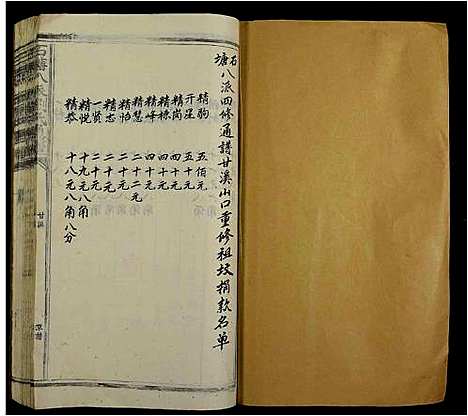 石塘八派四修通譜甘溪山口重修祖坟捐款名单
精驹 五佰元
开星 五十元
精岗 四十元
精栋 四十元
精峰 四十元
精慧 二十二元
精怕 二十元
精志 二十元
一贤 二十元
精悦 十九元八角
精恭 十八元八角八分